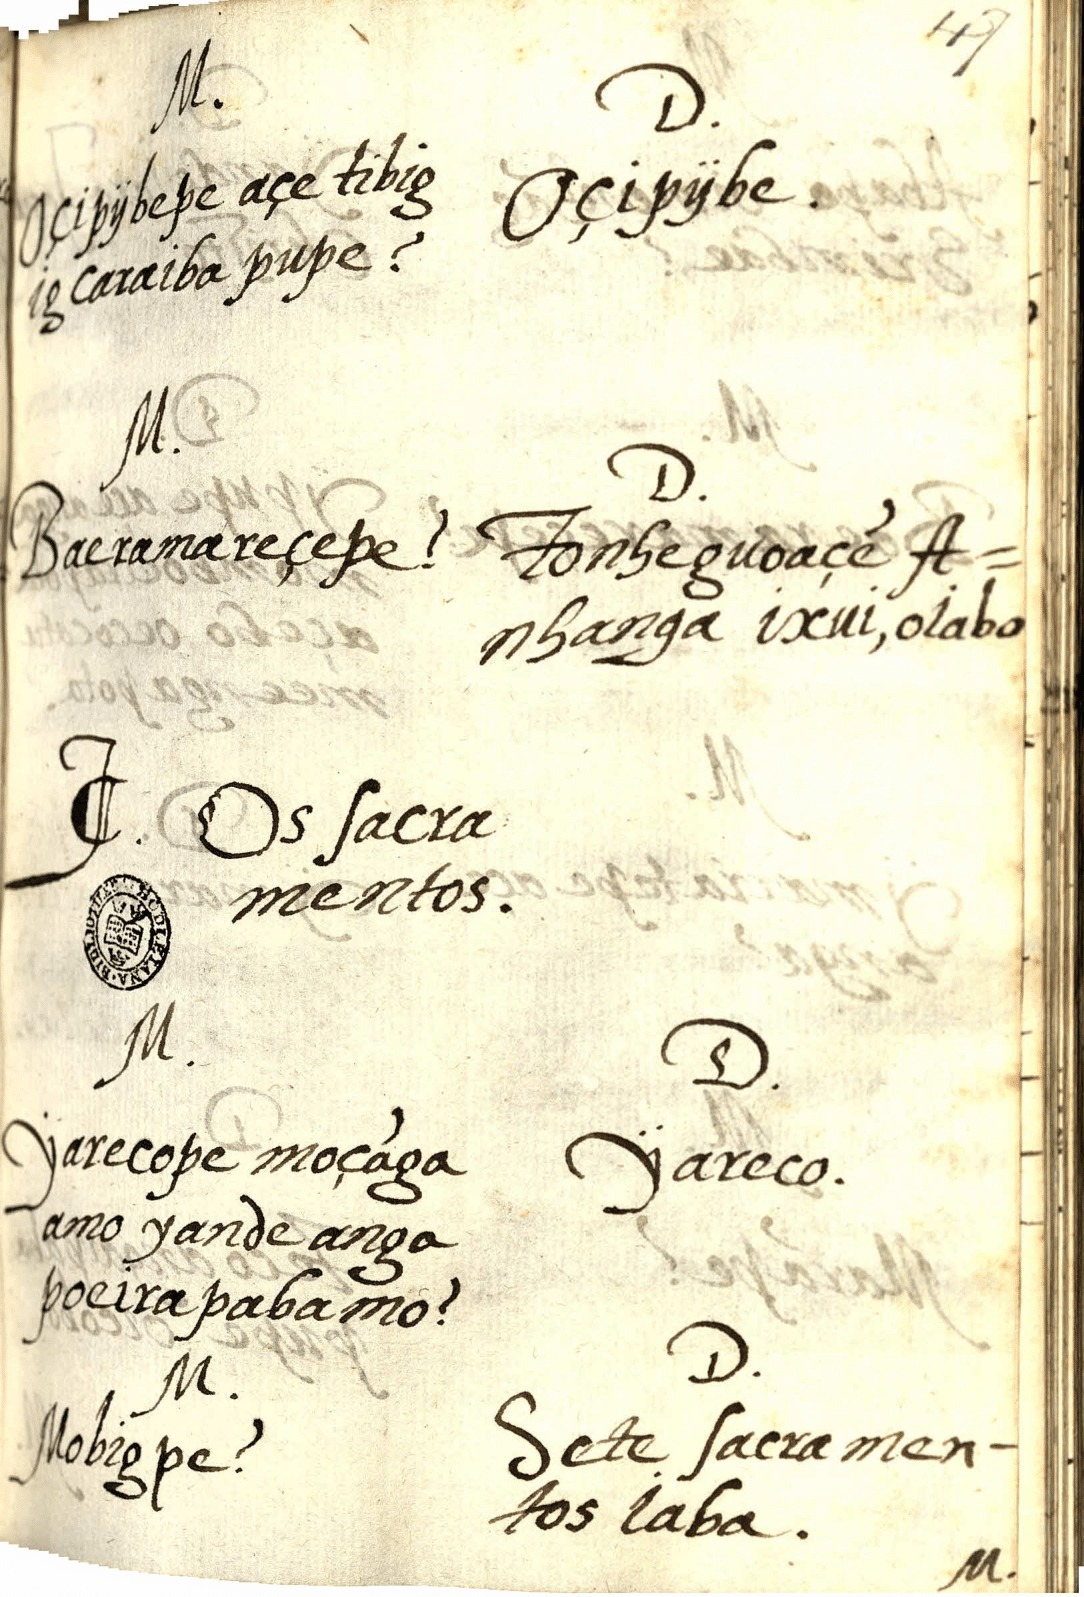 47
M.
Oçipÿbepe açe tibig
ig caraiba pupe?
D.
Oçipÿbe.
M.
Baeramareçepe?
D.
Tonheguoaçé A=
nhanga ixui, oiabo
Os sacra
mentos.
BIBLIOTHECA BODLEIANA
M.
Yarecope moçãga
amo yande anga
poeirapabamo?
D.
Ÿareco.
M.
Mobig pe?
D.
Sete sacramen-
tos iaba.
M.